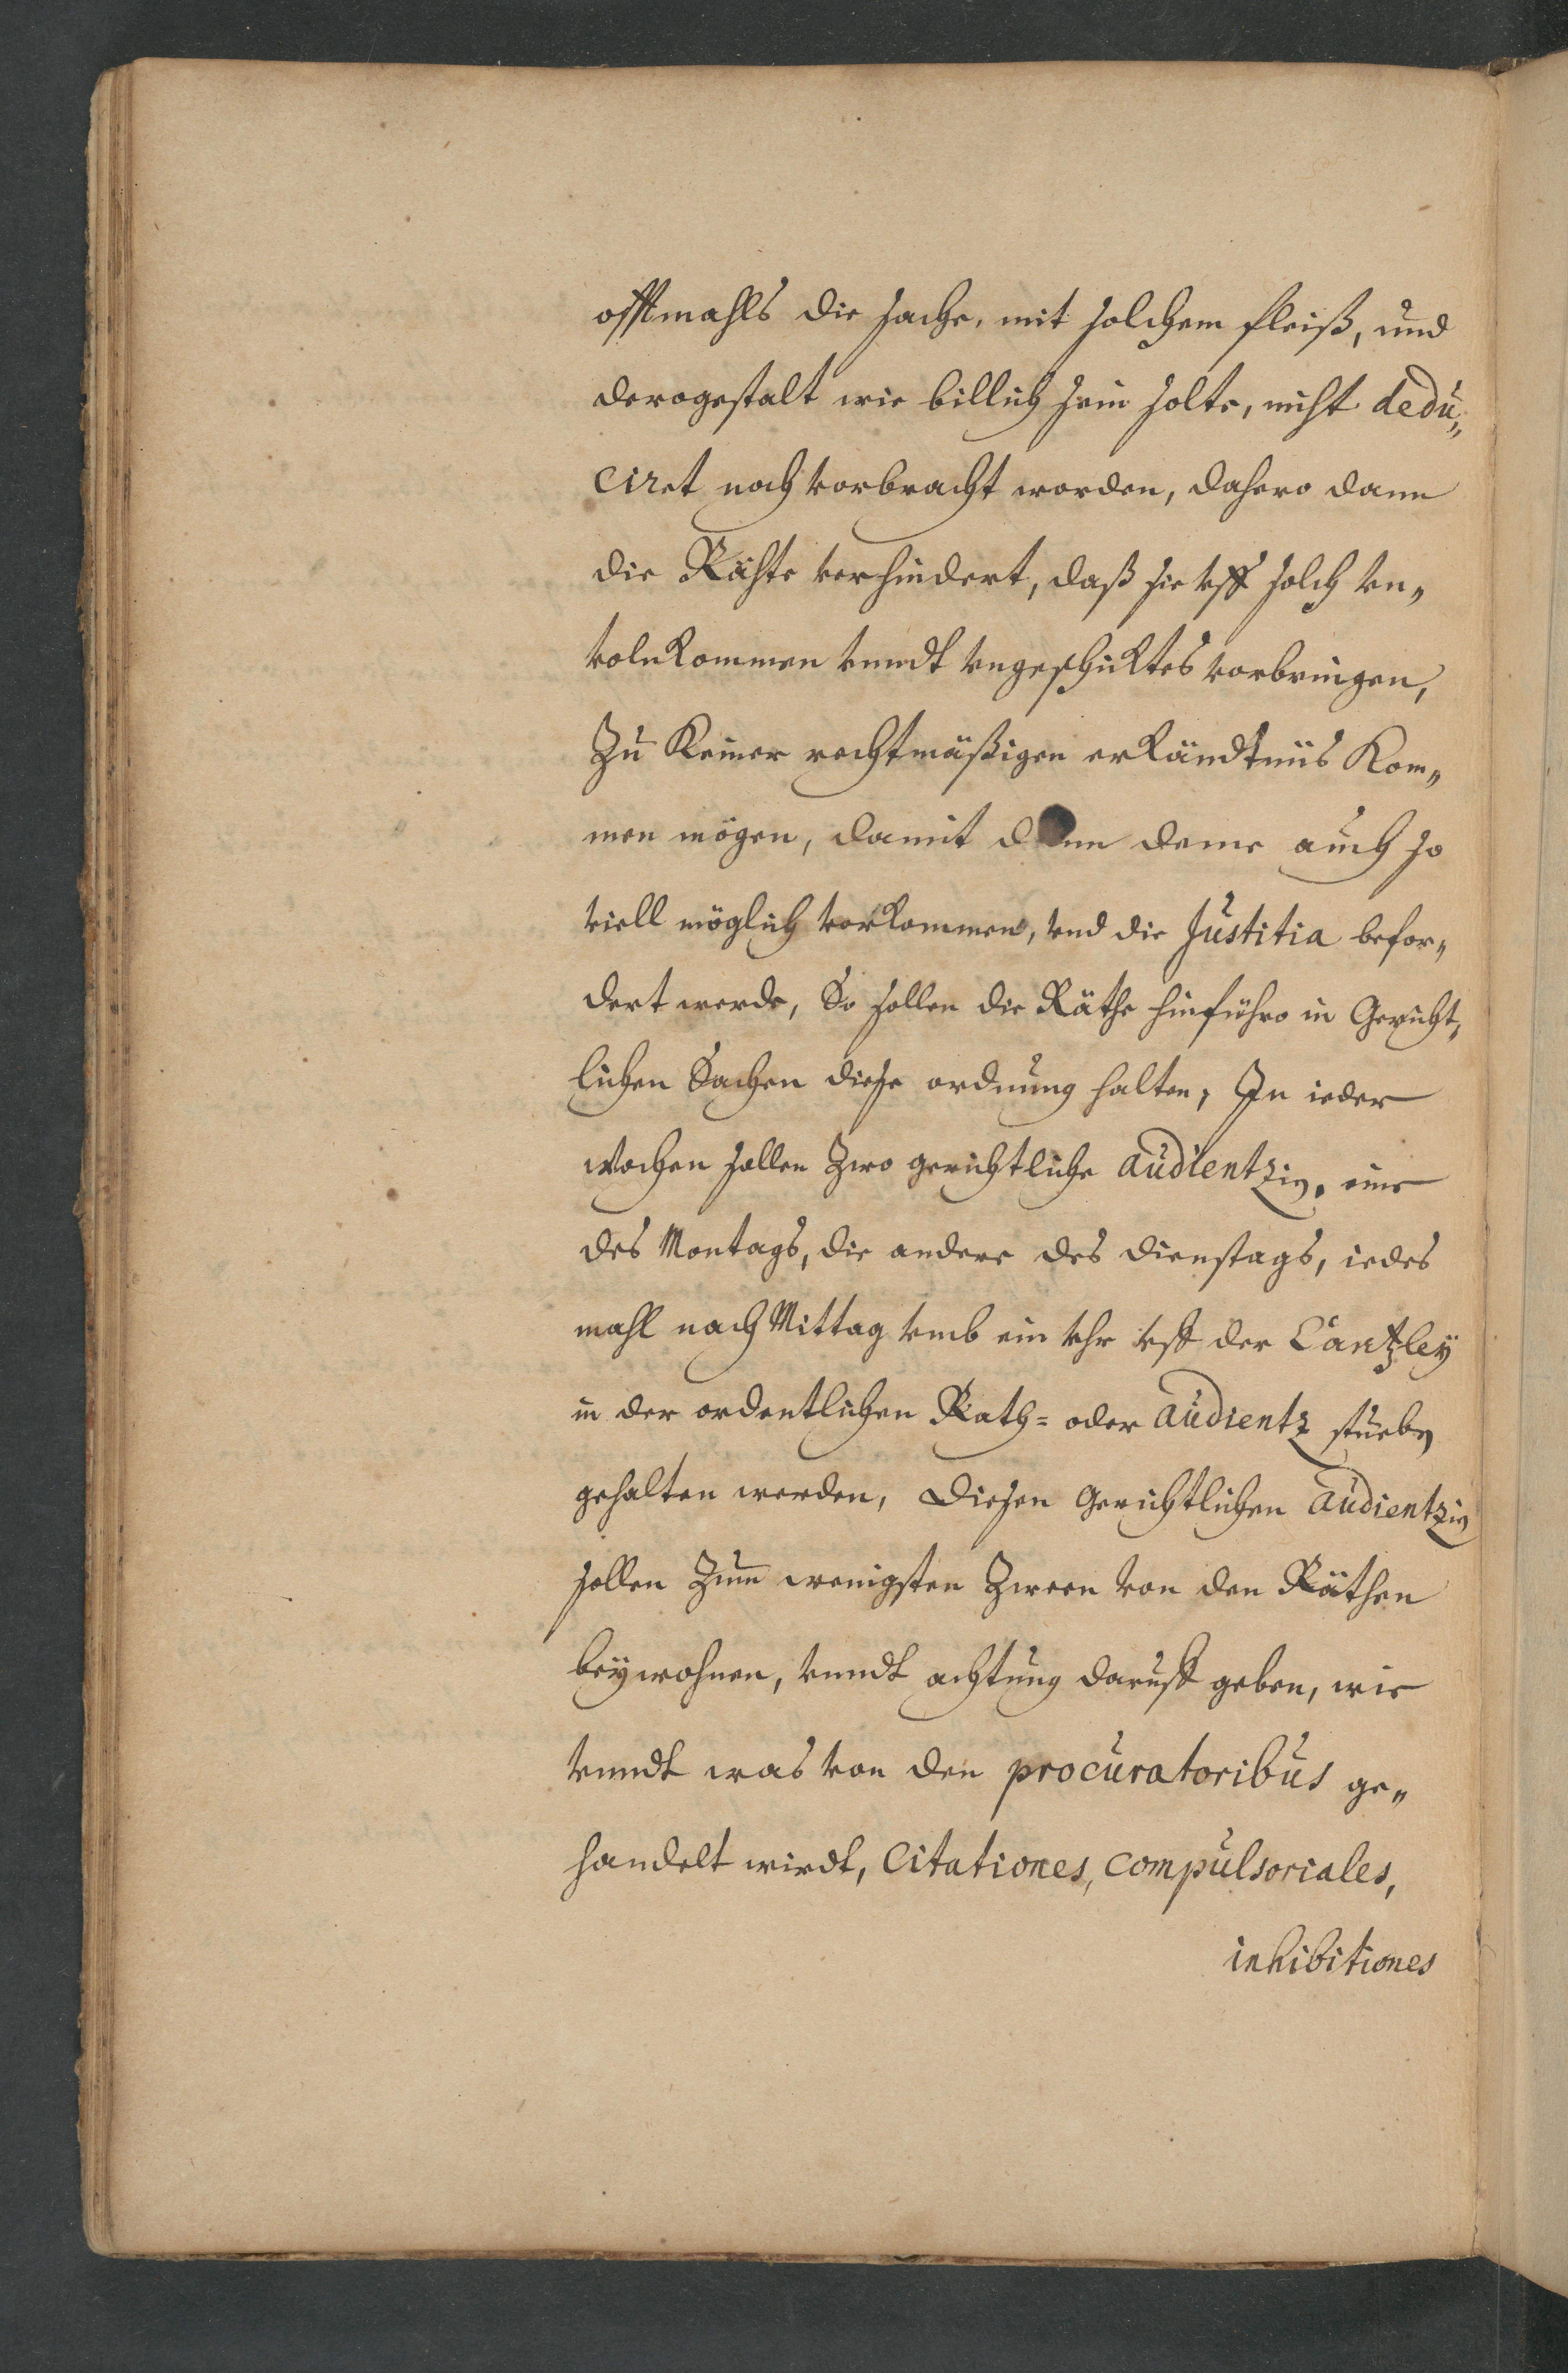 offtmahls die sache, mit solchem fleiß, und
derogestalt wie billich sein solte, nicht dedu„
ciret noch vorbracht worden, dahero dann
die Rähte verhindert, daß sie vff solch vn„
volnkommen vnndt vngeschicktes vorbringen,
Zu keiner rechtmäßigen erkändtnüs kom„
men mögen, damit dann deme auch so
viell möglich vorkommen, vnd die Justitia befor„
dert werde, So sollen die Räthe hinführo in Gericht„
lichen Sachen diese ordnung halten, In ieder
wochen sollen Zwo gerichtliche audientzien, eine
des Montags, die andere des dienstags, iedes
mahl nach Mittag vmb ein vhr vff der Cantzley
in der ordentlichen Rath= oder audientz stueben
gehalten werden, diesen Gerichtlichen audientzien
sollen Zum wenigsten Zween von den Räthen
beywohnen, vnndt achtung daruff geben, wie
vnndt was von den procuratoribus ge„
handelt wirdt, Citationes, compulsoriales,
inhibitiones